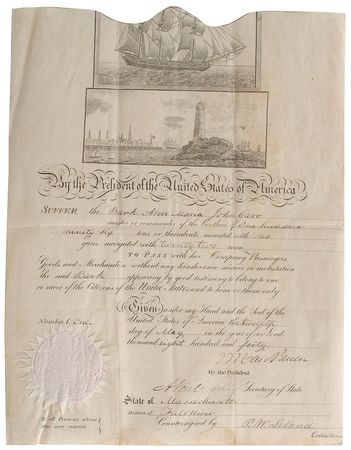 By the President of the United States of America
SUFFER the Bark Ann Maria John Carr
master or commander of the burthen of One hundred
ninety six tons or thereabouts mounted with no
guns navigated with twenty two men
TO PASS with her Company Passengers
Goods and Merchandize without any hinderance seisure or molestation
the said Bark appearing by good testimony to belong to one
or more of the Citizens of the United States and to him or them only
Given under my Hand and the Seal of the
United States of America the twelfth
day of May in the year of our Lord
thousand eight hundred and forty
M Van Buren
By the President
Number One
Secretary of State
State of Massachusetts
District of Fall River
Countersigned by P. W. Leland
To all Persons whom
this may concern
Collector